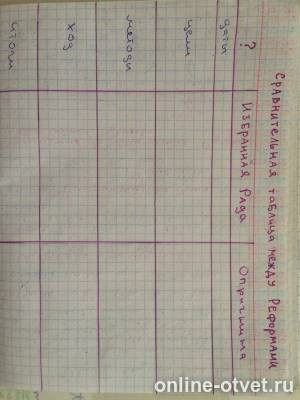 Сравнительная таблица между Реформами
? Избранная Рада Опричнина
даты
цели
методы
ход
итоги
online-otvet.ru